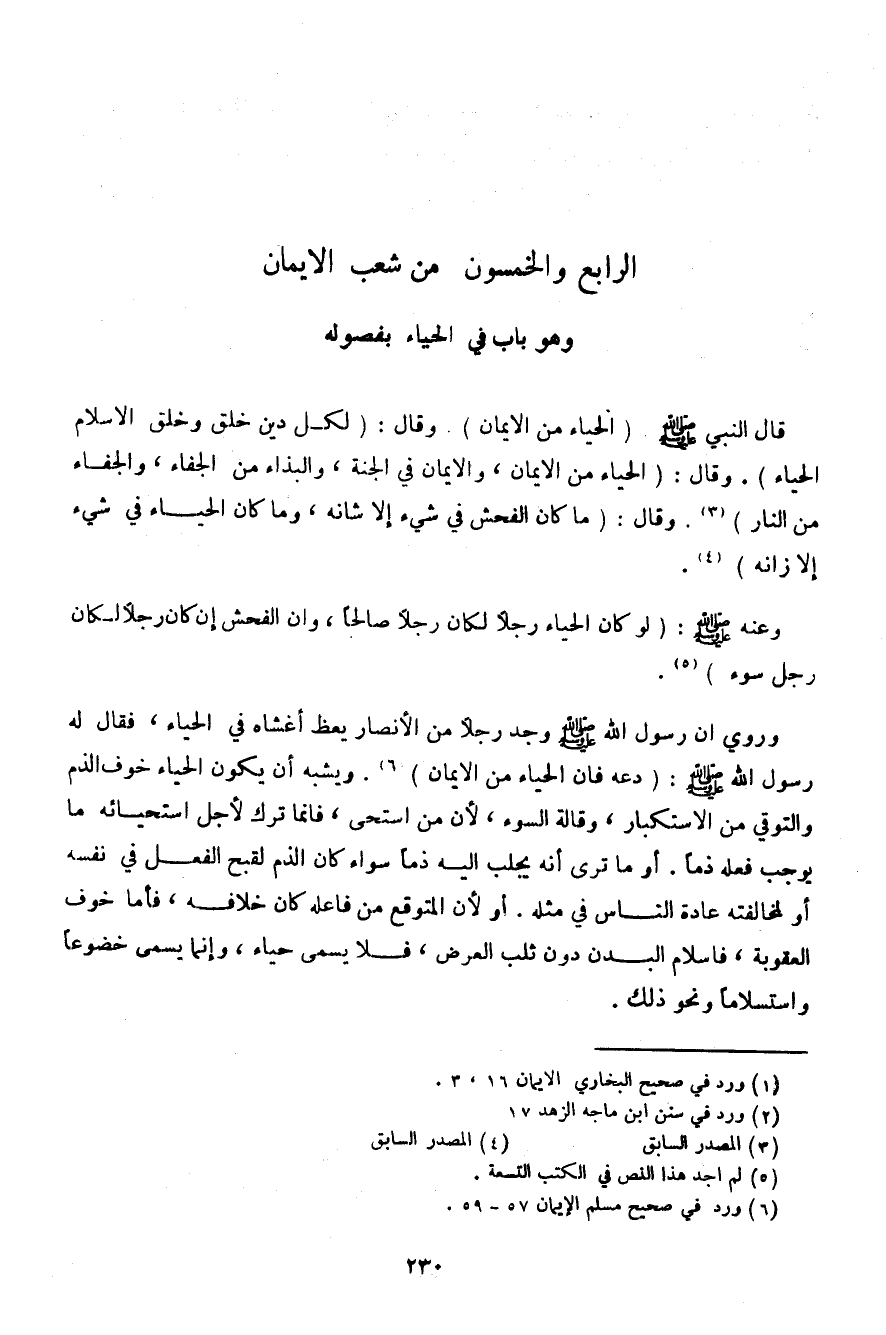 الرابع والخمسون من شعب الايمان
وهو باب في الحياء بفصوله
قال النبي ﷺ . ( الحياء من الايمان ) . وقال : ( لكـل دين خلق وخلق الاسلام
الحياء ) . وقال : ( الحياء من الايمان ، والايمان في الجنة ، والبذاء من الجفاء ، والجفـاء
من النار ) (٣) . وقال : ( ما كان الفحش في شيء إلا شانه ، وما كان الحيـــاء في شيء
إلا زانه ) (٤) .
وعنه ﷺ : ( لو كان الحياء رجلاً لكان رجلاً صالحاً ، وان الفحش إن كان رجلاً لـكان
رجل سوء ) (٥) .
وروي ان رسول الله ﷺ وجد رجلاً من الأنصار يعظ أغشاه في الحياء ، فقال له
رسول الله ﷺ : ( دعه فان الحياء من الايمان ) (٦) . ويشبه أن يكون الحياء خوف الذم
والتوقي من الاستكبار ، وقالة السوء ، لأن من استحى ، فانما ترك لأجل استحيـائه ما
يوجب فعله ذماً . أو ما ترى أنه يجلب اليـه ذماً سواء كان الذم لقبح الفعـــل في نفسه
أو لمخالفته عادة النـــاس في مثله . أو لأن المتوقع من فاعله كان خلافـــه ، فأما خوف
العقوبة ، فاسلام البـــدن دون ثلب العرض ، فـــلا يسمى حياء ، وإنما يسمى خضوعاً
واستسلاماً ونحو ذلك .
(١) ورد في صحيح البخاري الايمان ١٦ ، ٣ .
(٢) ورد في سنن ابن ماجه الزهد ١٧
(٣) المصدر السابق (٤) المصدر السابق
(٥) لم اجد هذا النص في الكتب التسعة .
(٦) ورد في صحيح مسلم الإيمان ٥٧ - ٥٩ .
٢٣٠